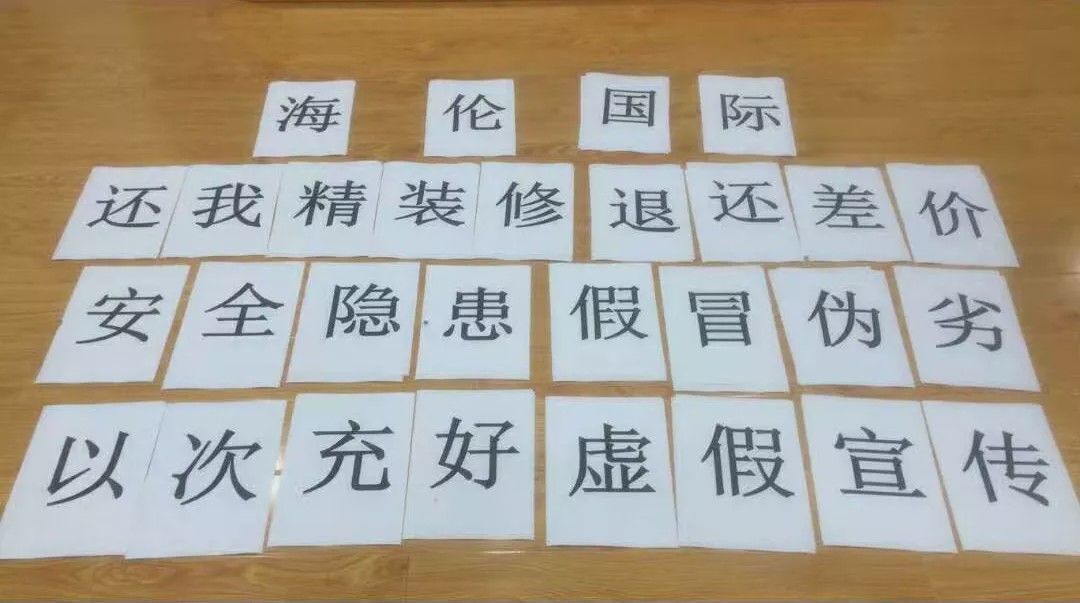 海伦国际
还我精装修 退还差价
安全隐患 假冒伪劣
以次充好 虚假宣传